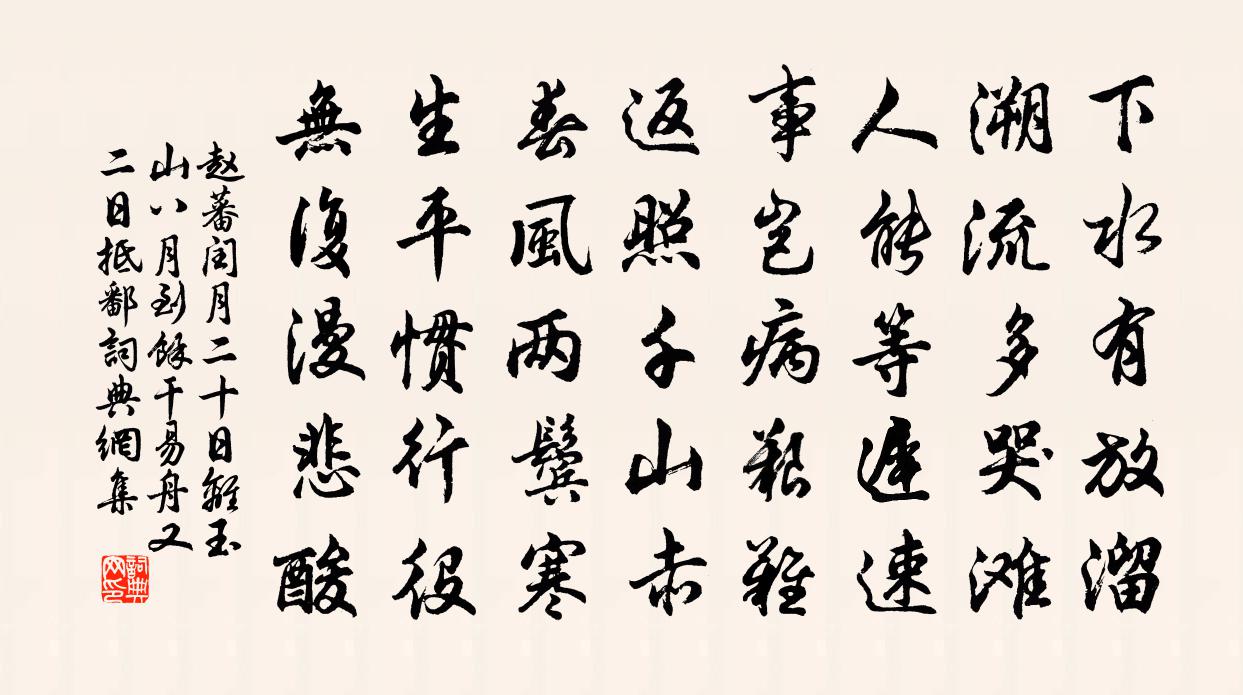 下水有放溜
溯流多哭滩
人能等遲速
事豈病艱難
返照千山赤
春風两鬓寒
生平慣行役
無復漫悲酸
赵蕃闰月二十日離玉
山八月到餘干易舟又
二日抵鄱詞典網集
詞典網印